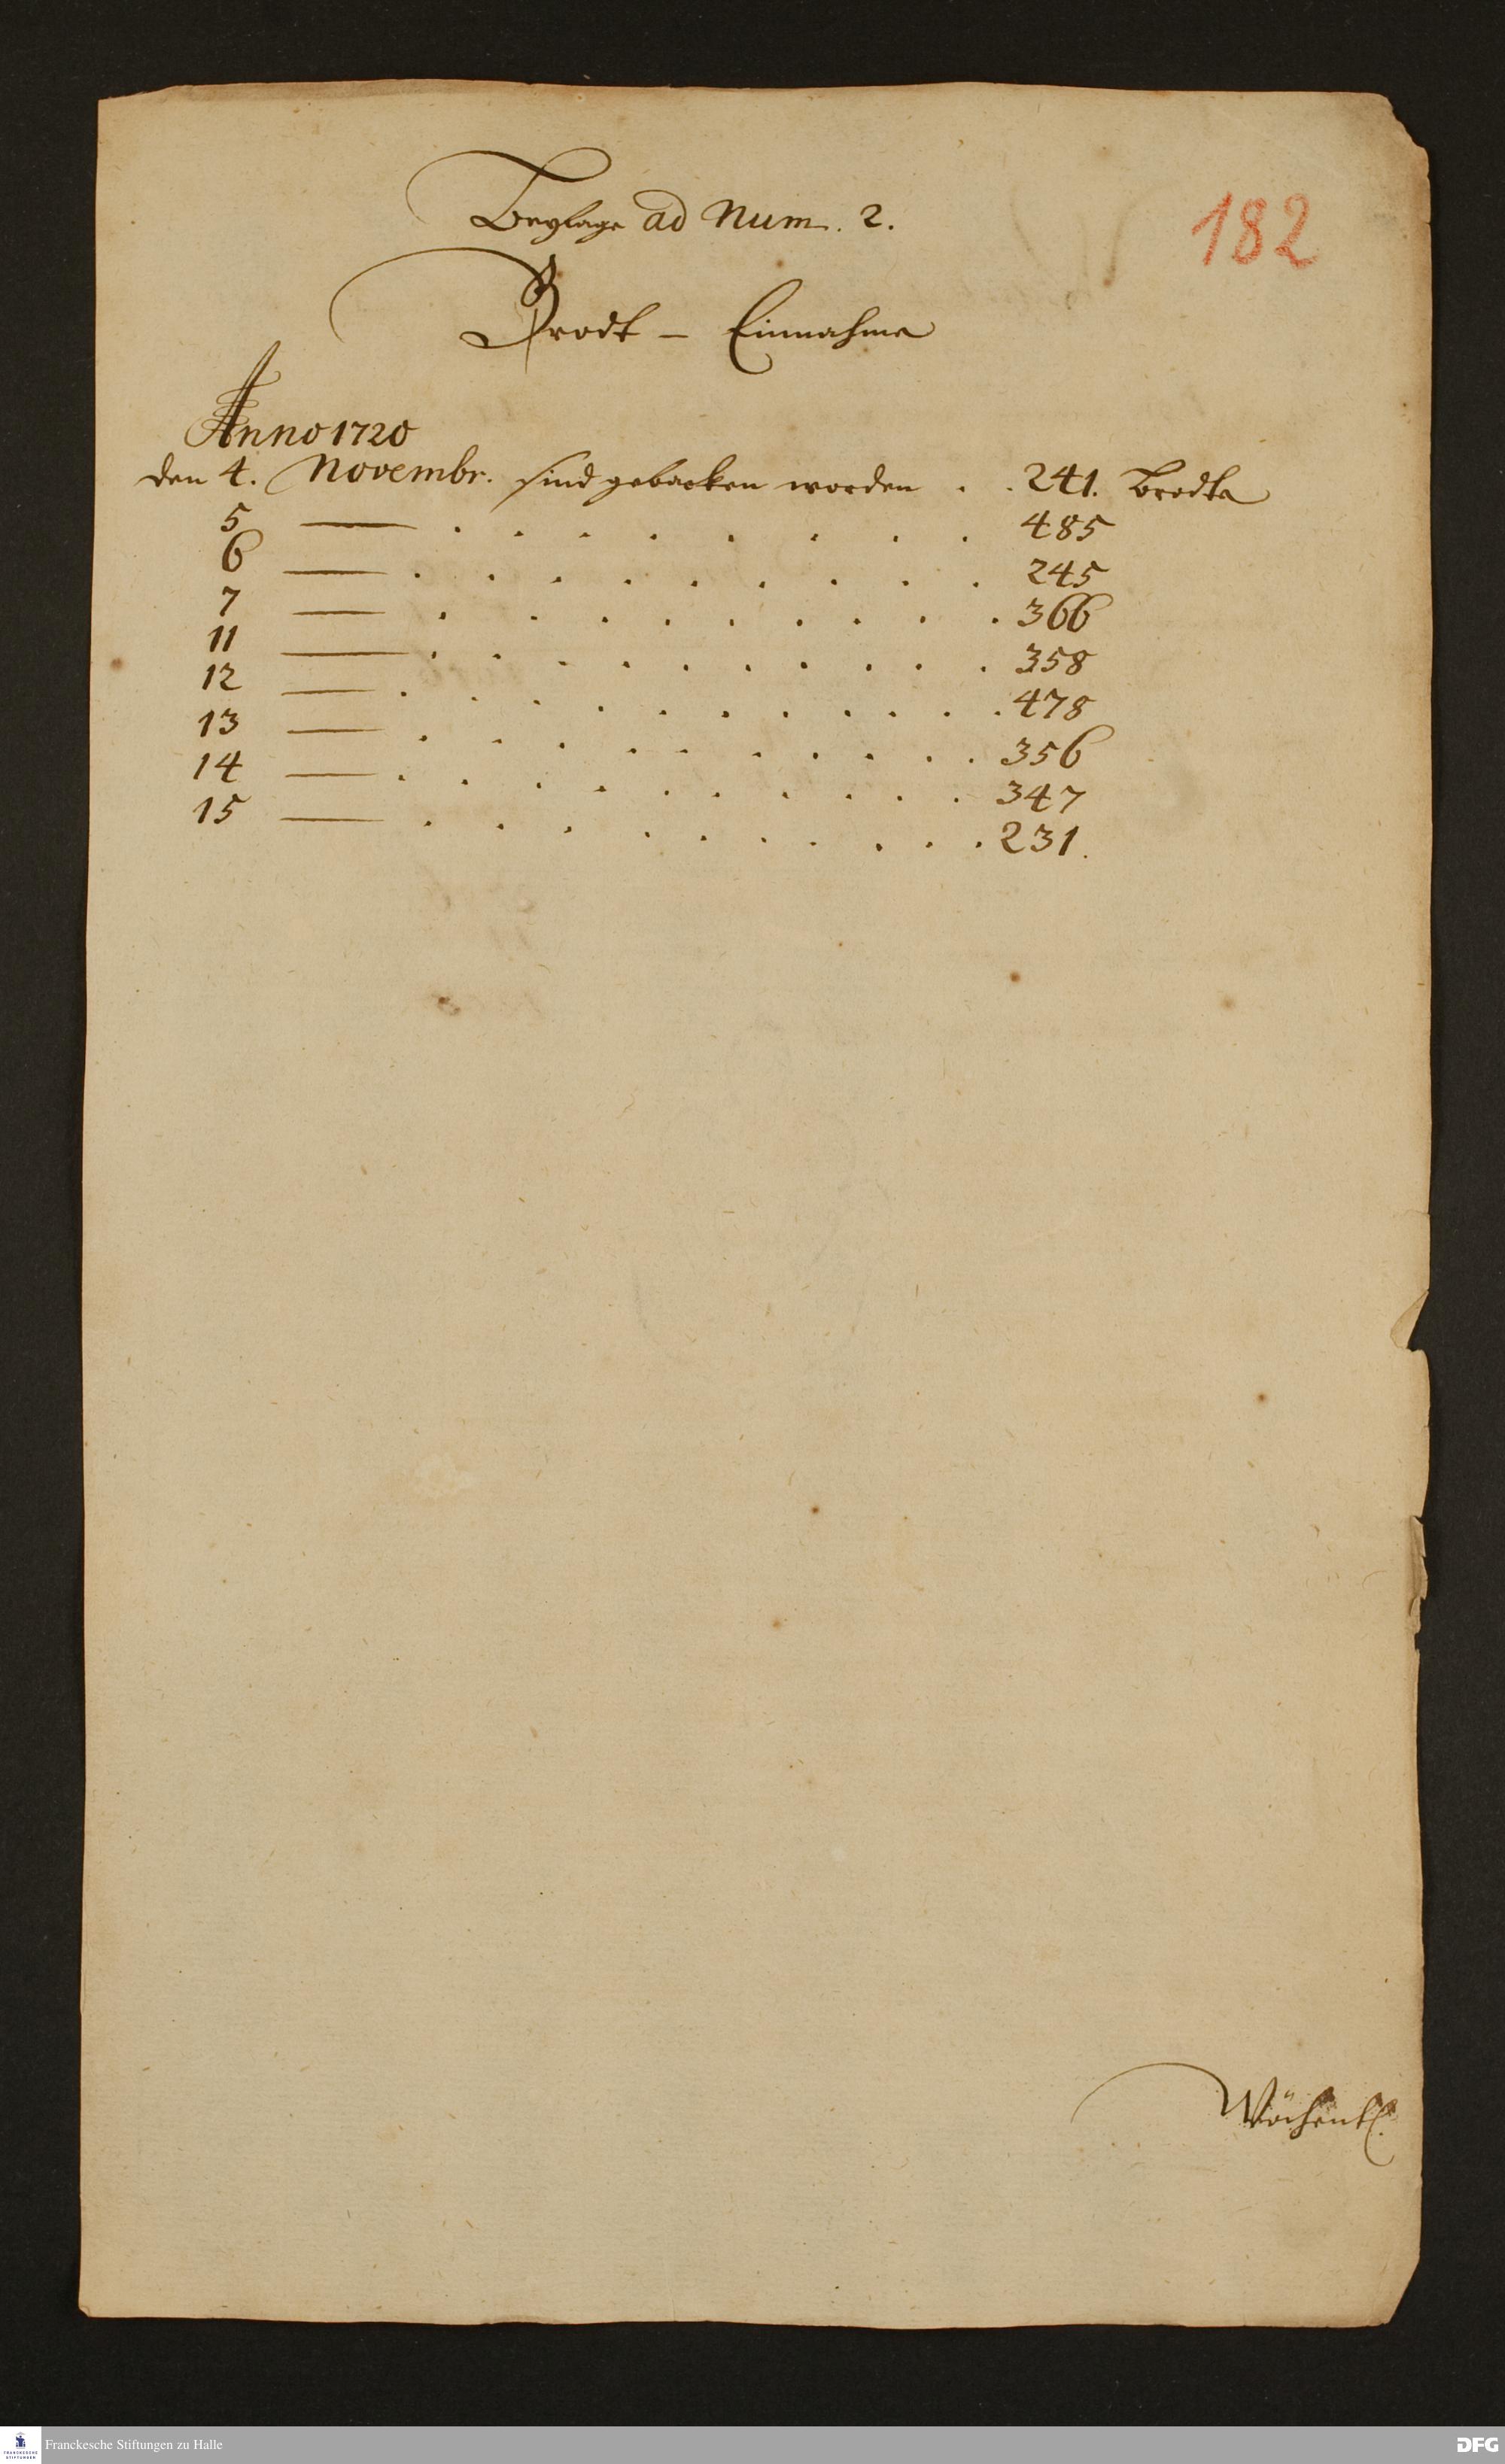 Beylage ad Num. 2.
182
Brodt – Einnahme
Anno 1720
den 4. Novembr. sind gebacken worden . . 241. Brodte
5 — . . . . . . . . . 485
6 — . . . . . . . . . 245
7 — . . . . . . . . . 366
11 — . . . . . . . . . 358
12 — . . . . . . . . . . 478
13 — . . . . . . . . . 356
14 — . . . . . . . . . 347
15 — . . . . . . . . . 231.
Wöchentl.
FRANCKESCHE STIFTUNGEN
Franckesche Stiftungen zu Halle
DFG